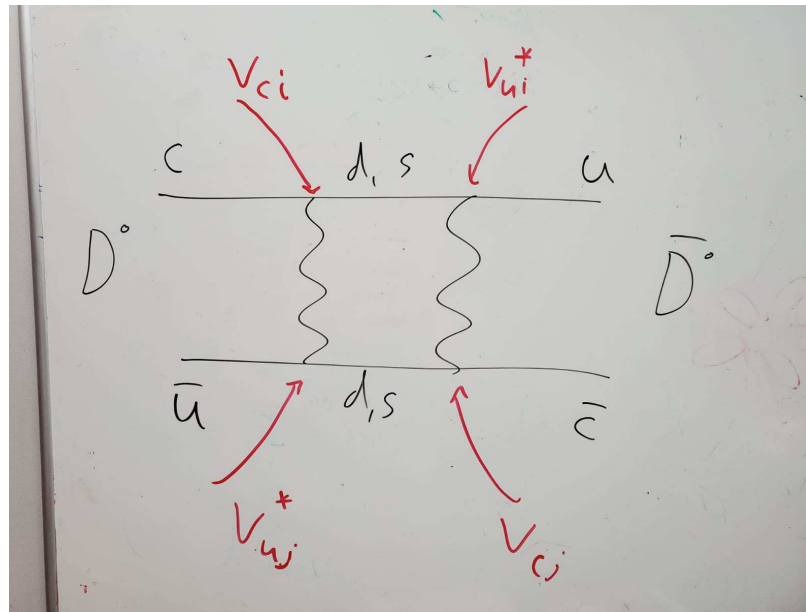 V_ci V_ui*
c d, s u
D° D̄°
ū d,s c̄
V_uj* V_cj